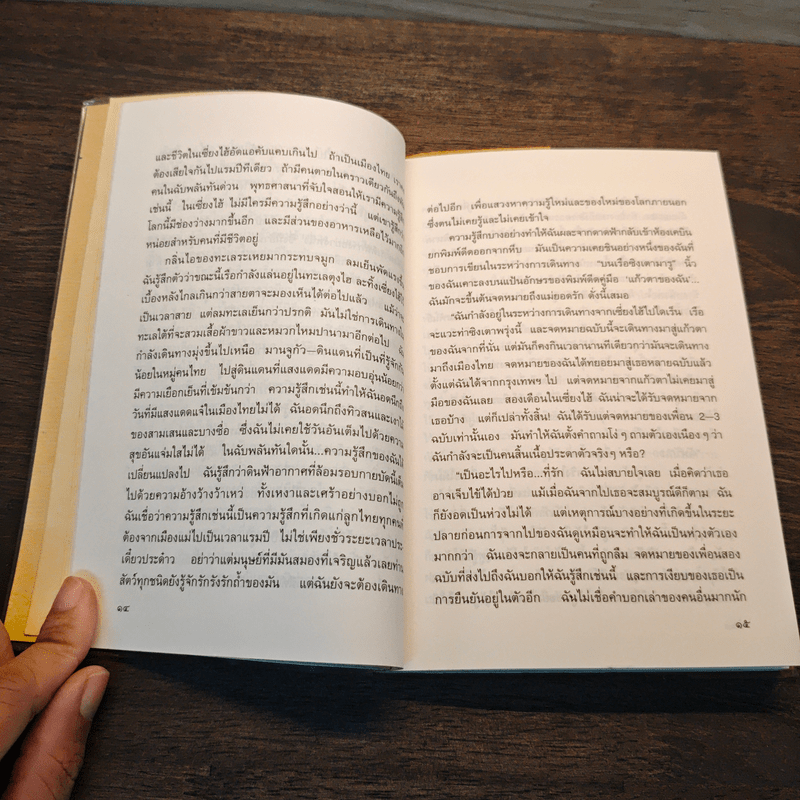 และชีวิตในเซี่ยงไฮ้อัดแอคับแคบเกินไป ถ้าเป็นเมืองไทย
ต้องเสียใจกันไปแรมปีทีเดียว ถ้ามีคนตายในคราวเดียวกันถึง
คนในฉับพลันทันด่วน พุทธศาสนาที่จับใจสอนให้เรามีความรู้สึก
เช่นนี้ ในเซี่ยงไฮ้ ไม่มีใครมีความรู้สึกอย่างว่านี้ แต่เขารู้สึก
โลกนี้มีช่องว่างมากขึ้นอีก และมีส่วนของอาหารเหลือไว้มาก
หน่อยสำหรับคนที่มีชีวิตอยู่
กลิ่นไอของทะเลระเหยมากระทบจมูก ลมเย็นพัดแรงขึ้น
ฉันรู้สึกตัวว่าขณะนี้เรือกำลังแล่นอยู่ในทะเลตุงไฮ ละทิ้งเซี่ยงไฮ้
เบื้องหลังไกลเกินกว่าสายตาจะมองเห็นได้ต่อไปแล้ว แม้ว่า
เป็นเวลาสาย แต่ลมทะเลเย็นกว่าปรกติ มันไม่ใช่การเดินทาง
ทะเลใต้ที่จะสวมเสื้อผ้าขาวและหมวกไหมปานามาอีกต่อไป
กำลังเดินทางมุ่งขึ้นไปเหนือ มานจูกัว—ดินแดนที่เป็นที่รู้จัก
น้อยในหมู่คนไทย ไปสู่ดินแดนที่แสงแดดมีความอบอุ่นน้อยกว่า
มีความเยือกเย็นที่เข้มข้นกว่า ความรู้สึกเช่นนี้ทำให้ฉันอดนึกถึง
วันที่มีแสงแดดแจ๋ในเมืองไทยไม่ได้ ฉันอดนึกถึงทิวสนและเงา
ของสามเสนและบางซื่อ ซึ่งฉันไม่เคยใช้วันอันเต็มไปด้วยความ
สุขอันแจ่มใสไม่ได้ ในฉับพลันทันใดนั้น...ความรู้สึกของฉัน
เปลี่ยนแปลงไป ฉันรู้สึกว่าดินฟ้าอากาศที่ล้อมรอบกายบัดนี้เต็ม
ไปด้วยความอ้างว้างว้าเหว่ ทั้งเหงาและเศร้าอย่างบอกไม่ถูก
ฉันเชื่อว่าความรู้สึกเช่นนี้เป็นความรู้สึกที่เกิดแก่ลูกไทยทุกคน
ต้องจากเมืองแม่ไปเป็นเวลาแรมปี ไม่ใช่เพียงชั่วระยะเวลาประ
เดี๋ยวประด๋าว อย่าว่าแต่มนุษย์ที่มีมันสมองที่เจริญแล้วเลยท่าน
สัตว์ทุกชนิดยังรู้จักรักรังรักถ้ำของมัน แต่ฉันยังจะต้องเดินทาง
๑๔
ต่อไปอีก เพื่อแสวงหาความรู้ใหม่และของใหม่ของโลกภายนอก
ซึ่งตนไม่เคยรู้และไม่เคยเข้าใจ
ความรู้สึกบางอย่างทำให้ฉันผละจากดาดฟ้ากลับเข้าห้องเคบิน
ยกพิมพ์ดีดออกจากหีบ มันเป็นความเคยชินอย่างหนึ่งของฉันที่
ชอบการเขียนในระหว่างการเดินทาง “บนเรือซิงเตามารู” นิ้ว
ของฉันเคาะลงบนแป้นอักษรของพิมพ์ดีดคู่มือ ‘แก้วตาของฉัน’...
ฉันมักจะขึ้นต้นจดหมายถึงแม่ยอดรัก ดั่งนี้เสมอ
“ฉันกำลังอยู่ในระหว่างการเดินทางจากเซี่ยงไฮ้ไปไดเร็น เรือ
จะแวะท่าซิงเตาพรุ่งนี้ และจดหมายฉบับนี้จะเดินทางมาสู่แก้วตา
ของฉันจากที่นั่น แต่มันก็คงกินเวลานานทีเดียวกว่ามันจะเดินทาง
มาถึงเมืองไทย จดหมายของฉันได้ทยอยมาสู่เธอหลายฉบับแล้ว
ตั้งแต่ฉันได้จากกรุงเทพฯ ไป แต่จดหมายจากแก้วตาไม่เคยมาสู่
มือของฉันเลย สองเดือนในเซี่ยงไฮ้ ฉันน่าจะได้รับจดหมายจาก
เธอบ้าง แต่ก็เปล่าทั้งสิ้น! ฉันได้รับแต่จดหมายของเพื่อน 2—3
ฉบับเท่านั้นเอง มันทำให้ฉันตั้งคำถามโง่ ๆ ถามตัวเองเนือง ๆ ว่า
ฉันกำลังจะเป็นคนสิ้นเนื้อประดาตัวจริง ๆ หรือ?
“เป็นอะไรไปหรือ...ที่รัก ฉันไม่สบายใจเลย เมื่อคิดว่าเธอ
อาจเจ็บไข้ได้ป่วย แม้เมื่อฉันจากไปเธอจะสมบูรณ์ดีก็ตาม ฉัน
ก็ยังอดเป็นห่วงไม่ได้ แต่เหตุการณ์บางอย่างที่เกิดขึ้นในระยะ
ปลายก่อนการจากไปของฉันดูเหมือนจะทำให้ฉันเป็นห่วงตัวเอง
มากกว่า ฉันเองจะกลายเป็นคนที่ถูกลืม จดหมายของเพื่อนสอง
ฉบับที่ส่งไปถึงฉันบอกให้ฉันรู้สึกเช่นนี้ และการเงียบของเธอเป็น
การยืนยันอยู่ในตัวอีก ฉันไม่เชื่อคำบอกเล่าของคนอื่นมากนัก
๑๕